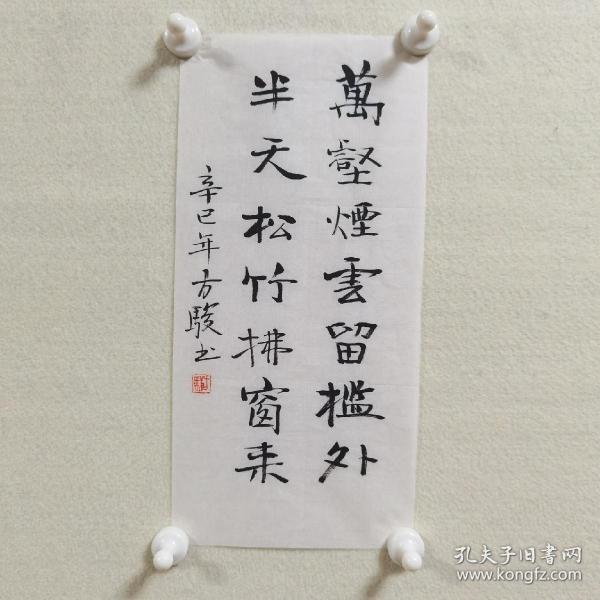 萬壑煙雲留檻外
半天松竹拂窗来
辛巳年方駿书
孔夫子旧書网
www.kongfz.com